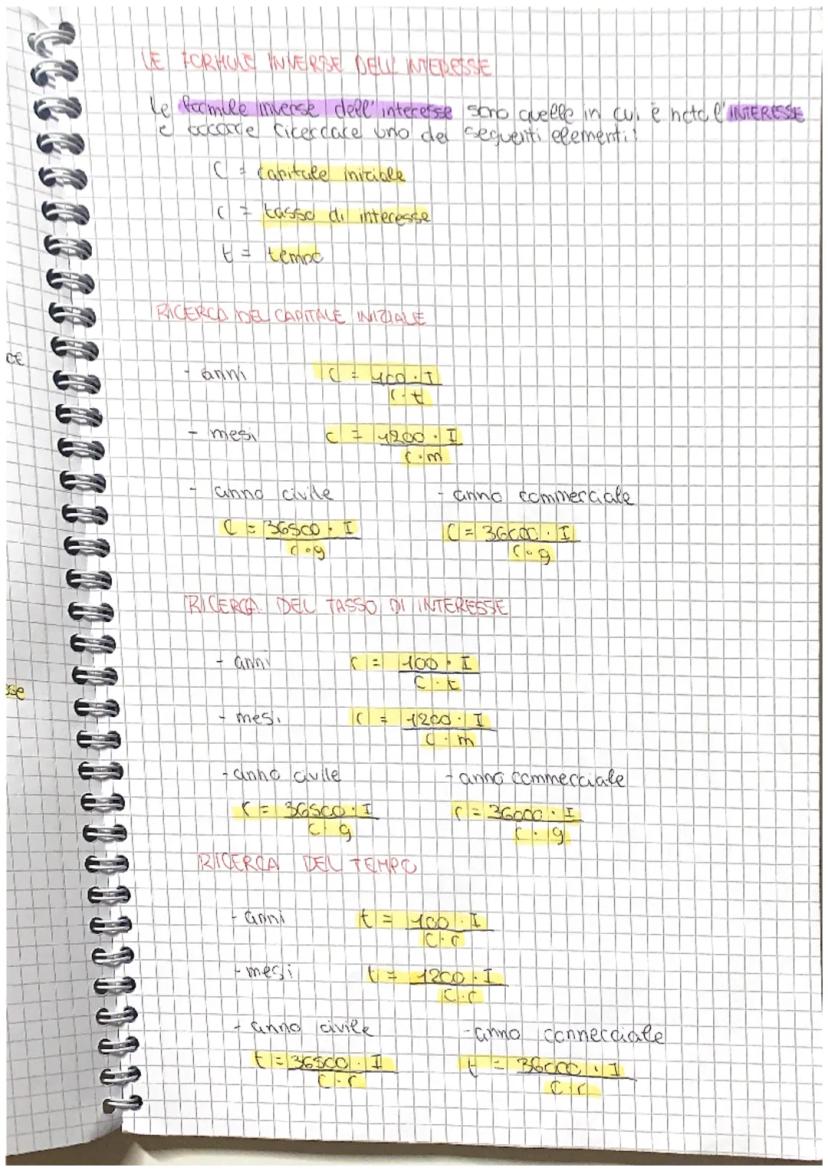 LE FORMULE INVERSE DELL'INTERESSE
Le formule inverse dell'interesse sono quelle in cui è noto l'INTERESSE
e occorre ricercare uno dei seguenti elementi:
C = capitale iniziale
r = tasso di interesse
t = tempo
RICERCA DEL CAPITALE INIZIALE
- anni C = 100 · I / r · t
- mesi C = 1200 · I / r · m
- anno civile - anno commerciale
C = 36500 · I / r · g C = 36000 · I / r · g
RICERCA DEL TASSO DI INTERESSE
- anni r = 100 · I / C · t
- mesi r = 1200 · I / C · m
- anno civile - anno commerciale
r = 36500 · I / C · g r = 36000 · I / C · g
RICERCA DEL TEMPO
- anni t = 100 · I / C · r
- mesi t = 1200 · I / C · r
- anno civile - anno commerciale
t = 36500 · I / C · r t = 36000 · I / C · r